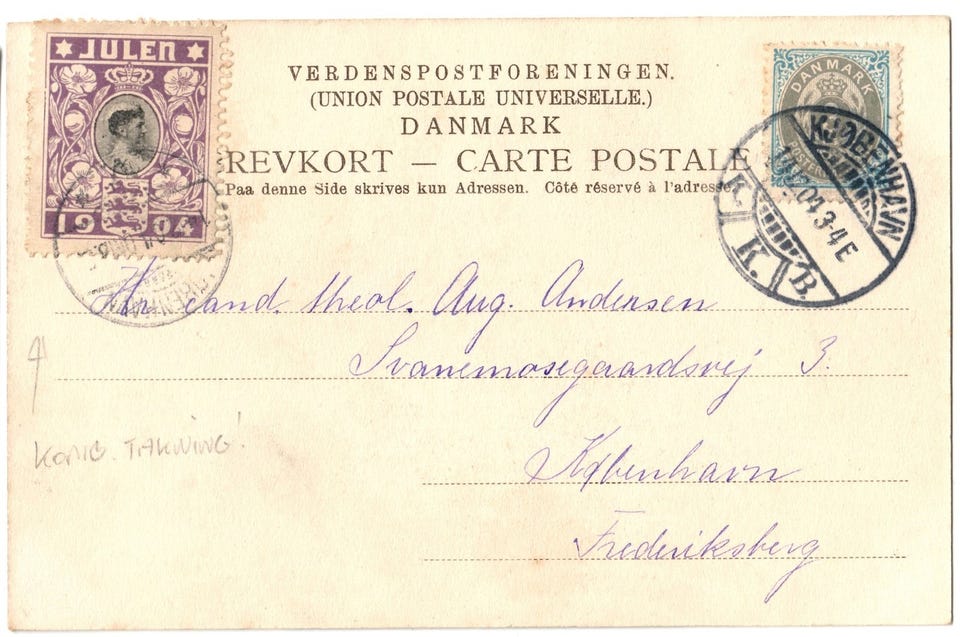 JULEN
1904
VERDENSPOSTFORENINGEN.
(UNION POSTALE UNIVERSELLE.)
DANMARK
REVKORT — CARTE POSTALE
Paa denne Side skrives kun Adressen. Côté réservé à l'adresse.
DANMARK
KJØBENHAVN
04 3-4 E
K. B.
Hr. cand. theol. Aug. Andersen
Svanemosegaardsvej 3.
København
Frederiksberg